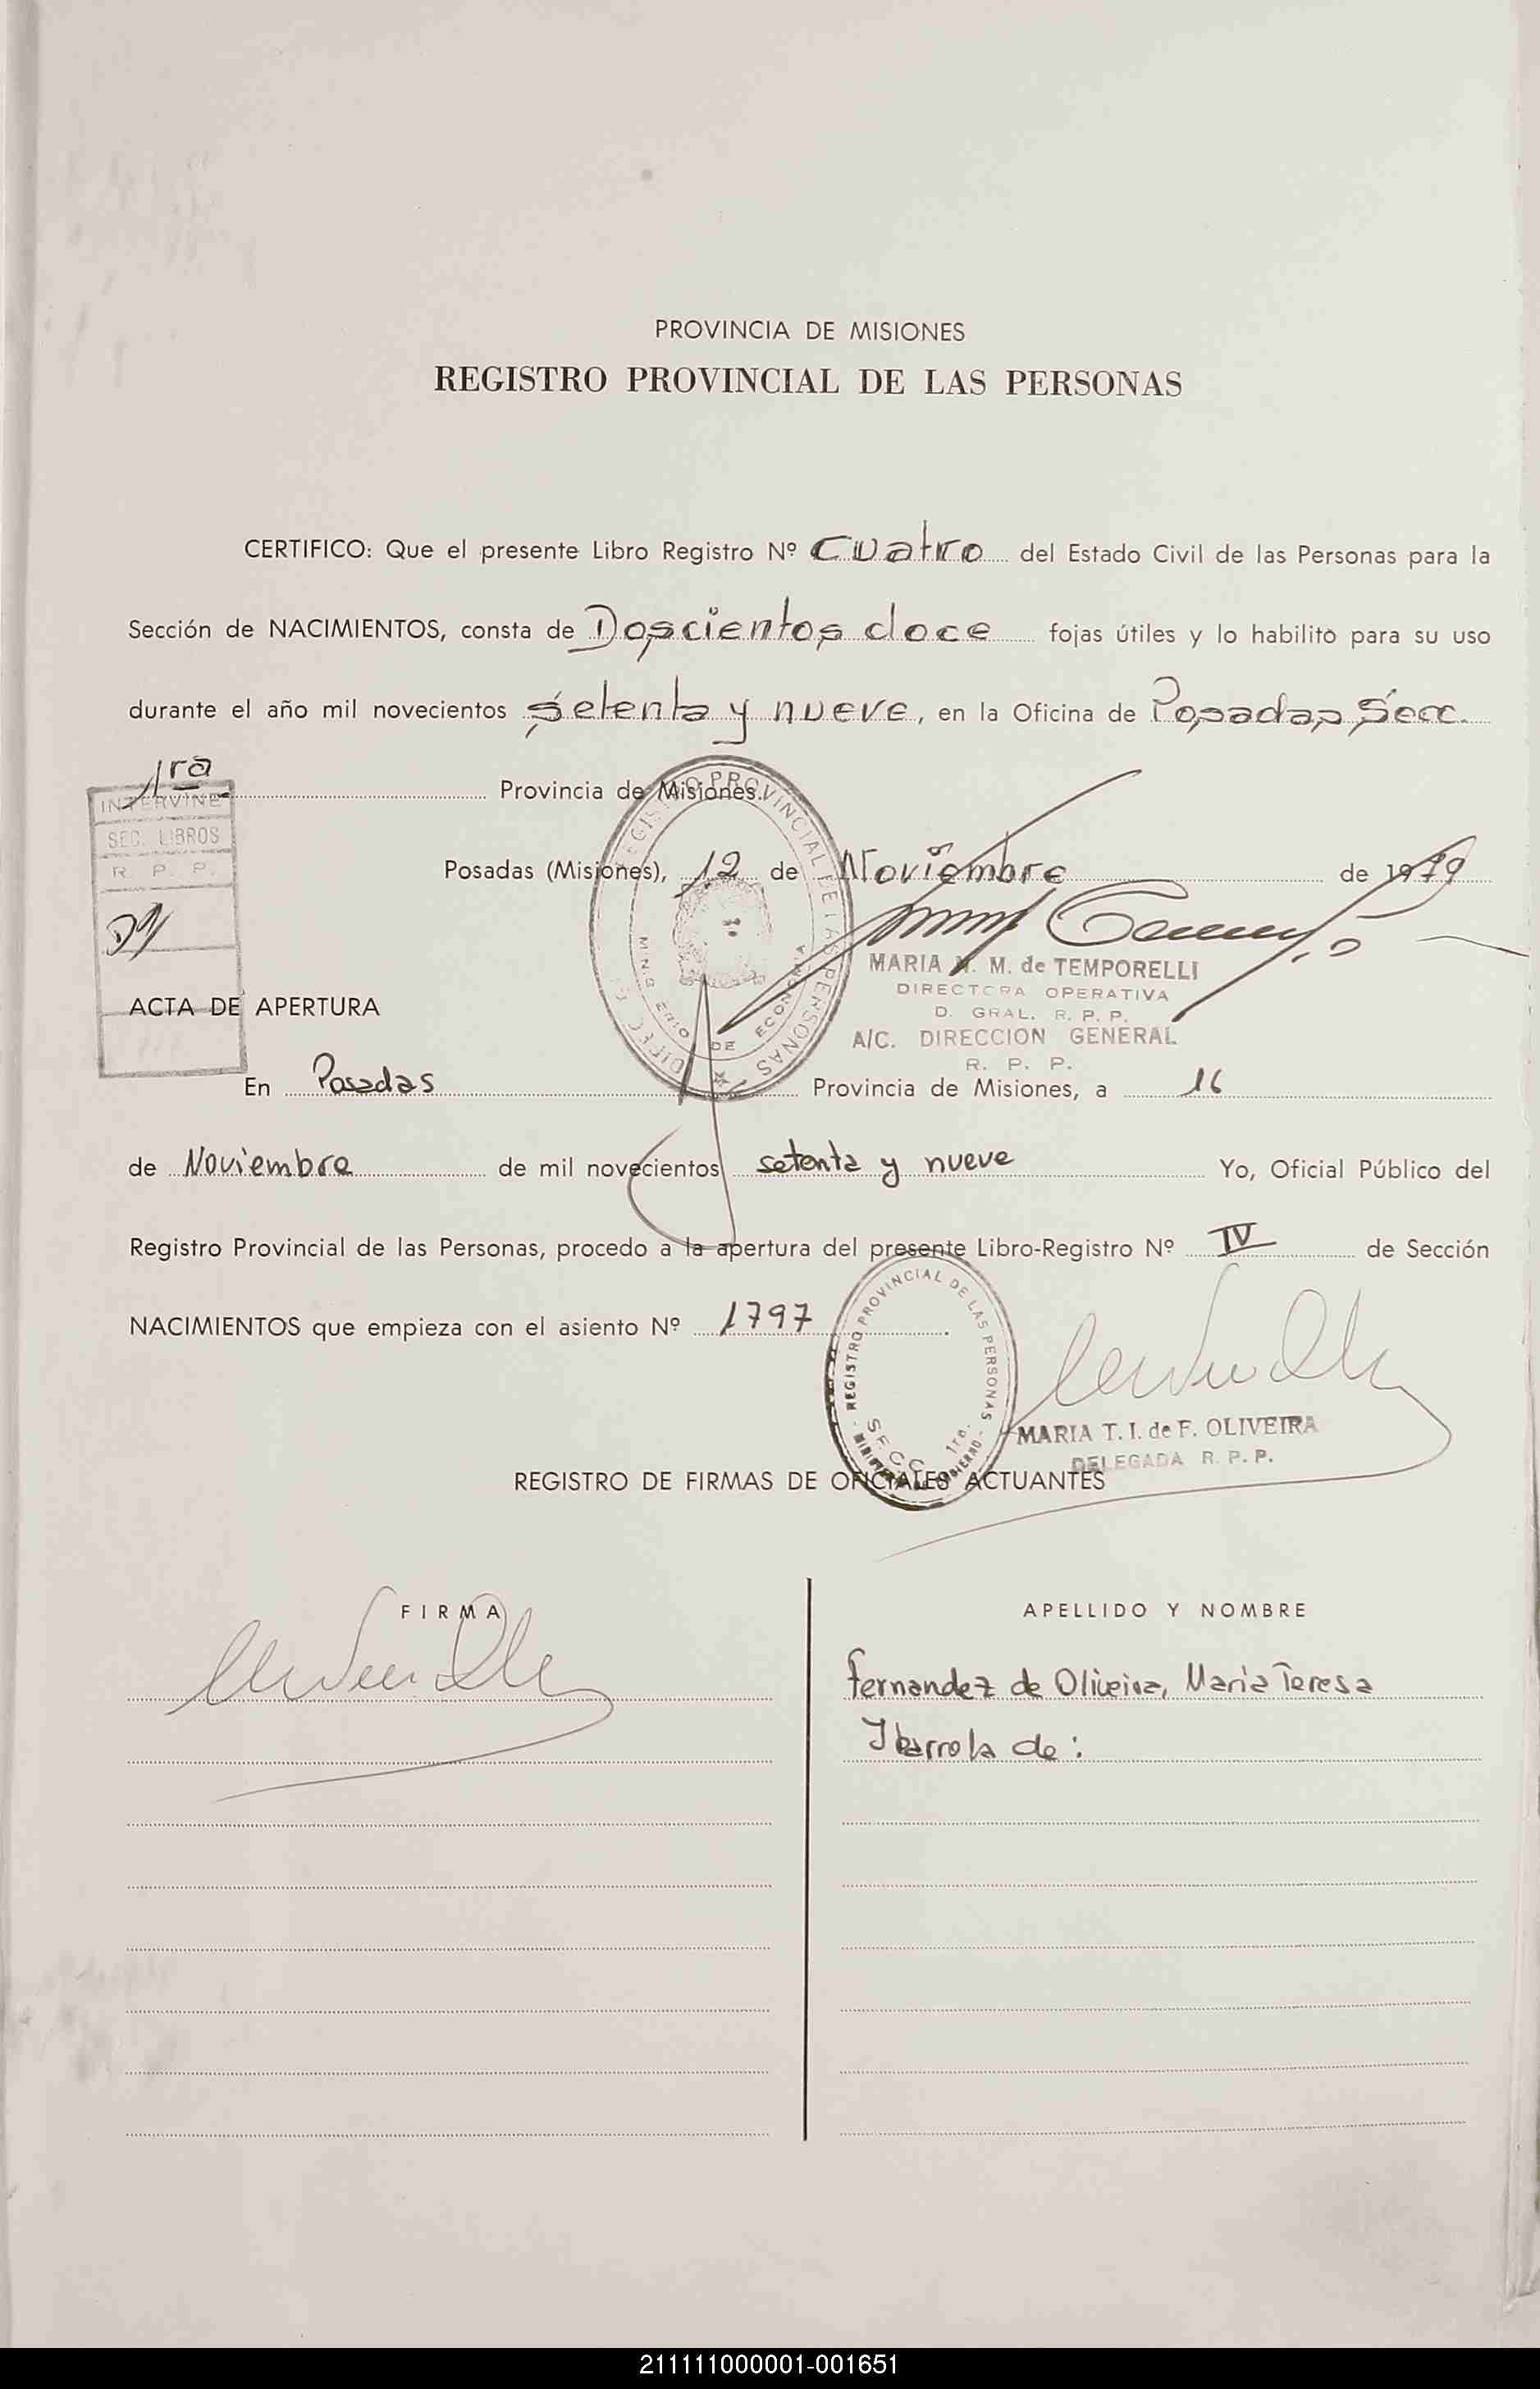 PROVINCIA DE MISIONES
REGISTRO PROVINCIAL DE LAS PERSONAS
CERTIFICO: Que el presente Libro Registro Nº Cuatro del Estado Civil de las Personas para la
Sección de NACIMIENTOS, consta de Doscientos doce fojas útiles y lo habilito para su uso
durante el año mil novecientos setenta y nueve, en la Oficina de Posadas, Secc.
1ra Provincia de Misiones.
INTERVINE
SEC. LIBROS
R. P. P.
Posadas (Misiones), 12 de Noviembre de 1979
MARIA M. de TEMPORELLI
DIRECTORA OPERATIVA
D. GRAL. R. P. P.
A/C. DIRECCION GENERAL
R. P. P.
REGISTRO PROVINCIAL DE LAS PERSONAS
DE ECONOMIA
ACTA DE APERTURA
En Posadas Provincia de Misiones, a 16
de Noviembre de mil novecientos setenta y nueve Yo, Oficial Público del
Registro Provincial de las Personas, procedo a la apertura del presente Libro-Registro Nº IV de Sección
NACIMIENTOS que empieza con el asiento Nº 1797.
REGISTRO PROVINCIAL DE LAS PERSONAS
SECC. 1ra.
MARIA T. I. de F. OLIVEIRA
DELEGADA R. P. P.
REGISTRO DE FIRMAS DE OFICIALES ACTUANTES
FIRMA
APELLIDO Y NOMBRE
Fernandez de Oliveira, Maria Teresa
Ibarrola de:
211111000001-001651